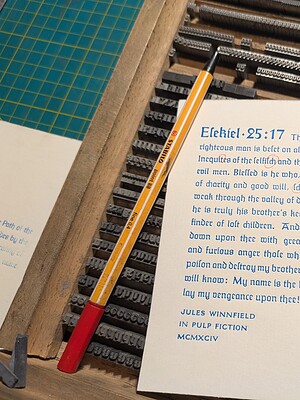 Path of the
by the
STABILO
point 88
Eſekiel · 25:17
righteous man is beſet on
Inequities of the ſelfiſch and
evil men. Bleſſed is he who,
of charity and good will,
weak through the valley of
he is truly his brother's
finder of loſt children. And
down upon thee with
and furious anger thoſe
poiſon and deſtroy my
will know: My name is the
lay my vengeance upon thee!
JULES WINNFIELD
IN PULP FICTION
MCMXCIV